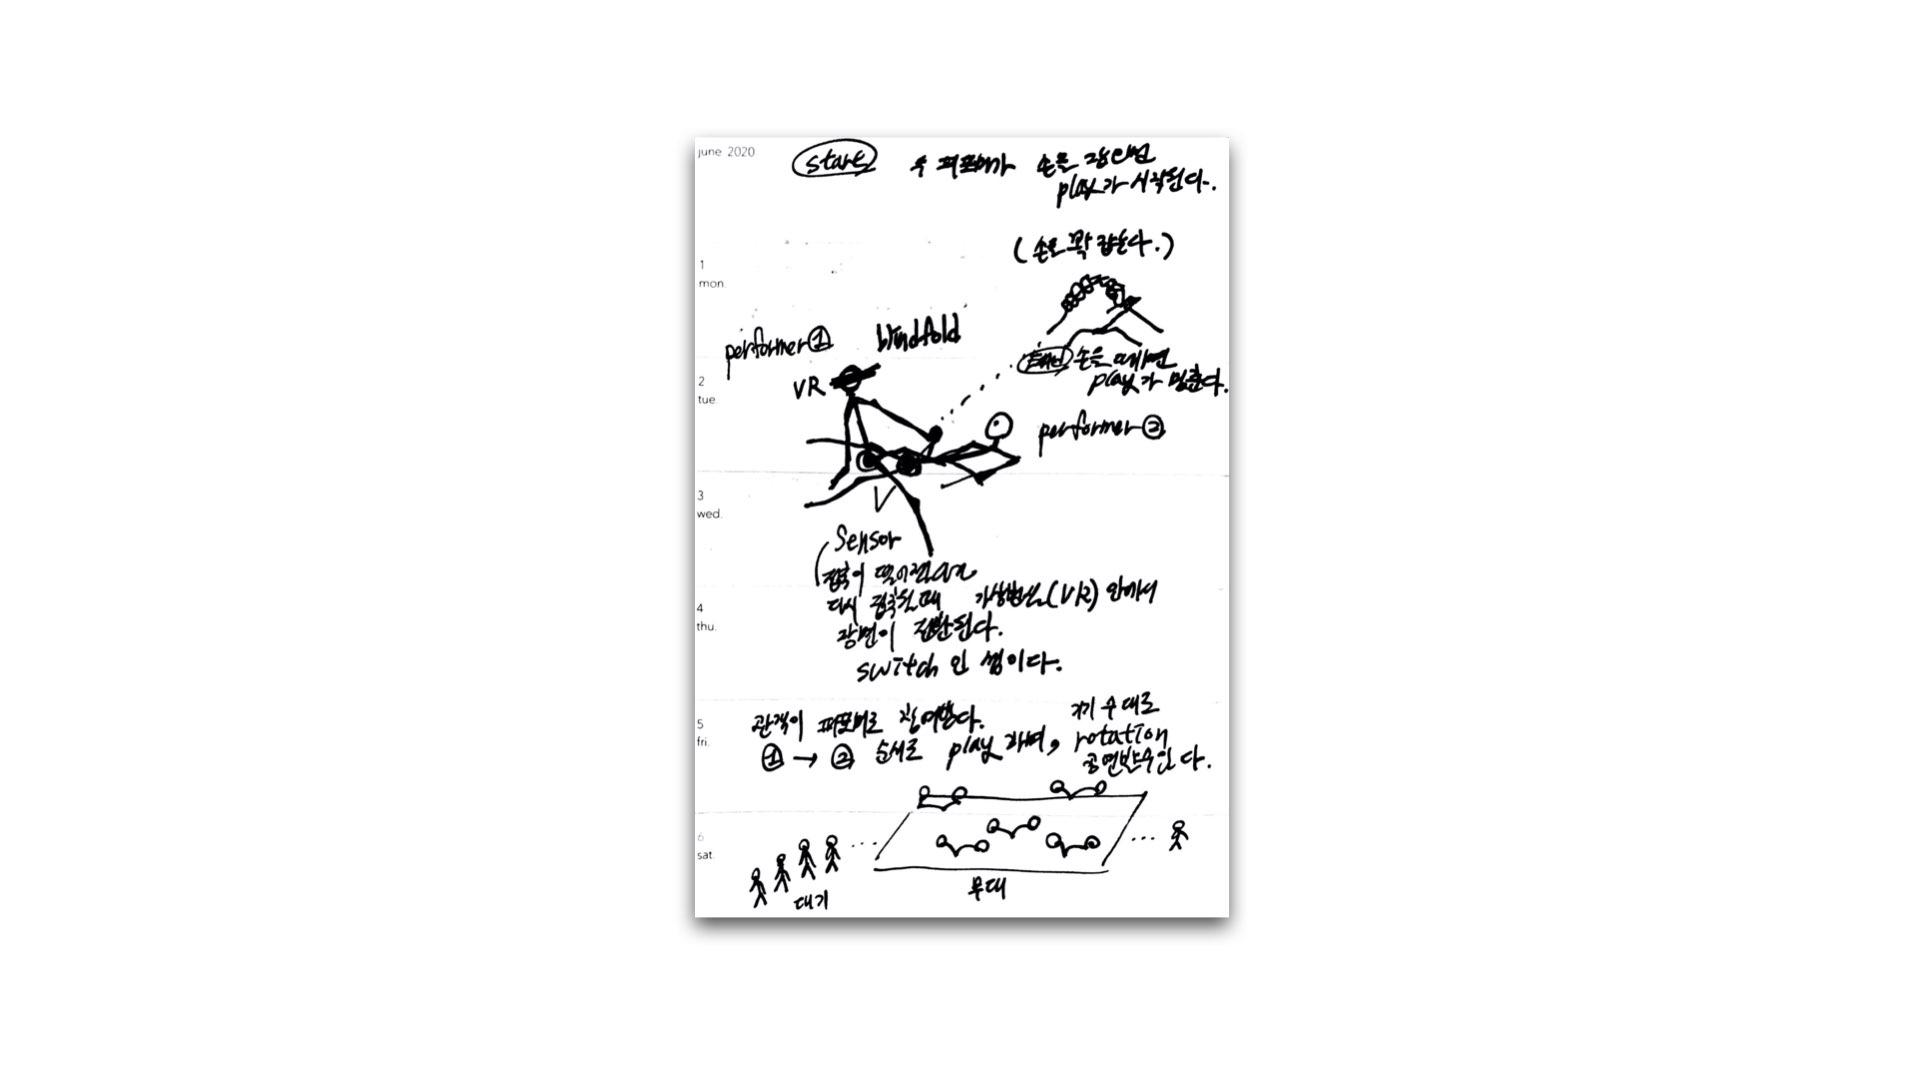 june 2020
start 두 퍼포머가 손을 잡으면
play가 시작된다.
(손을 꽉 잡는다.)
1
mon.
performer ①
blindfold
VR
손을 떼면
play가 멈춘다.
2
tue.
performer ②
3
wed.
Sensor
접촉이 떨어졌다가
다시 접촉될 때 가상현실(VR) 안에서
장면이 전환된다.
switch 인 셈이다.
4
thu.
관객이 퍼포머로 참여한다.
① → ② 순서로 play 하며,
무대로
rotation
공연방식이다.
5
fri.
6
sat.
대기
무대